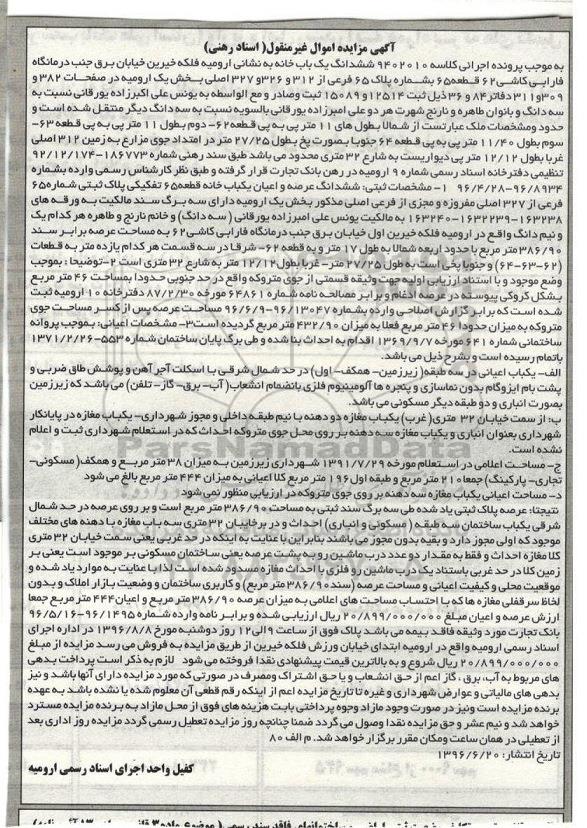 آگهی مزایده اموال غیرمنقول( اسناد رهنی)
به موجب پرونده اجرائی کلاسه ۹۴۰۲۰۱۰ ششدانگ یک باب خانه به نشانی ارومیه فلکه خیرین خیابان برق جنب درمانگاه
فارابی کاشی ۶۲ قطعه۶۵ بشماره پلاک ۶۵ فرعی از ۳۱۲ و ۳۲۶و ۳۲۷ اصلی بخش یک ارومیه در صفحات ۳۸۲ و
۳۰۹و۳۱۱ دفاتر۸۴ و ۳۶ ذیل ثبت ۱۲۵۱۴و ۱۵۰۸۹ ثبت وصادر و مع الواسطه به یونس علی اکبرزاده یورقانی نسبت به
سه دانگ و بانوان طاهره و نارنج شهرت هر دو علی امیرزاده یورقانی بالسویه نسبت به سه دانگ دیگر منتقل شده است و
حدود ومشخصات ملک عبارتست از شمالا بطول های ۱۱ متر پی به پی قطعه۶۲- دوم بطول ۱۱ متر پی به پی قطعه ۶۳-
سوم بطول ۱۱/۴۰ متر پی به پی قطعه ۶۴ جنوبا بصورت پخ بطول ۲۷/۲۵ متر در امتداد جوی مزارع به زمین ۳۱۲ اصلی
غربا بطول ۱۲/۱۲ متر پی دیواریست به شارع ۳۲ متری محدود می باشد طبق سند رهنی شماره ۱۸۶۷۷۳-۹۲/۱۲/۱۷
تنظیمی دفترخانه اسناد رسمی شماره ۹ ارومیه در رهن بانک تجارت قرار گرفته و طبق نظر کارشناس رسمی وارده بشماره
۹۶/۸۹۳۴-۹۶/۴/۲۸ ۱- مشخصات ثبتی: ششدانگ عرصه و اعیان یکباب خانه قطعه۶۵ تفکیکی پلاک ثبتی شماره۶۵
فرعی از ۳۲۷ اصلی مفروزه و مجزی از فرعی اصلی مذکور بخش یک ارومیه دارای سه برگ سند مالکیت به ورقه های
۱۶۳۲۳۸-۱۶۳۲۳۹-۱۶۳۲۴۰ به مالکیت یونس علی امیرزاده یورقانی (سه دانگ) و خانم نارنج و طاهره هر کدام یک
و نیم دانگ واقع در ارومیه فلکه خیرین اول خیابان برق جنب درمانگاه فارابی کاشی ۶۲ به مساحت عرصه برابر سند
۳۸۶/۹۰ متر مربع با حدود اربعه شمالا به طول ۱۷ متر و به قطعه ۶۲- شرقا درسه قسمت هر کدام یازده متر به قطعات
(۶۲-۶۳-۶۴) و جنوبا پخی است به طول ۲۷/۲۵ متر- غربا بطول ۱۲/۱۲ متر به شارع ۳۲ متری است ۲-توضیحا: بموجب
وضع موجود و با استناد ارزیابی اولیه جهت وثیقه قسمتی از جوی متروکه واقع در حد جنوبی حدودا بمساحت ۴۶ متر مربع
بشکل کروکی پیوسته در عرصه ادغام و برابر مصالحه نامه شماره ۶۴۸۶۱ مورخه ۸۷/۲/۳۰ دفترخانه ۱۰ ارومیه ثبت
شده است که برابر گزارش اصلاحی وارده بشماره ۹۶/۱۳۰۴۷-۹۶/۶/۹ مساحت عرصه پس از کسر مساحت جوی
متروکه به میزان حدودا ۴۶ متر مربع فعلا به میزان ۴۳۲/۹۰ متر مربع گردیده است۳- مشخصات اعیانی: بموجب پروانه
ساختمانی شماره ۶۴۱ مورخه ۱۳۶۹/۹/۷ اقدام به احداث بنا شده و طی برگ پایان ساختمان شماره ۵۵۳-۱۳۷۱/۲/۲۶
باتمام رسیده است و بشرح ذیل می باشد.
الف- یکباب اعیانی در سه طبقه( زیرزمین- همکف- اول) در حد شمال شرقی با اسکلت آجر آهن و پوشش طاق ضربی و
پشت بام ایزوگام بدون نماسازی و پنجره ها آلومینیوم فلزی بانضمام انشعاب( آب- برق- گاز- تلفن) می باشد که زیرزمین
بصورت انباری و دو طبقه دیگر مسکونی می باشد.
ب: از سمت خیابان ۳۲ متری(غرب) یکباب مغازه دو دهنه با نیم طبقه داخلی و مجوز شهرداری- یکباب مغازه در پایانکار
شهرداری بعنوان انباری و یکباب مغازه سه دهنه بر روی محل جوی متروکه احداث که در استعلام شهرداری ثبت و اعلام
نشده است.
ج- مساحت اعلامی در استعلام مورخه ۱۳۹۱/۷/۲۹ شهرداری زیرزمین به میزان ۳۸ متر مربع و همکف( مسکونی-
تجاری- پارکینگ) جمعا۲۱۰ متر مربع و طبقه اول۱۹۶ متر مربع کلا اعیانی به میزان ۴۴۴ متر مربع بالغ می شود
د- مساحت اعیانی یکباب مغازه سه دهنه بر روی جوی متروکه در ارزیابی منظور نمی شود
نتیجتا: عرصه پلاک ثبتی یاد شده طی سه برگ سند ثبتی به مساحت ۳۸۶/۹۰ متر مربع است و بر روی عرصه در حد شمال
شرقی یکباب ساختمان سه طبقه (مسکونی و انباری) احداث و در بر خیابان ۳۲ متری سه باب مغازه با دهنه های مختلف
موجود که اولی مجوز دارد و بقیه بدون مجوز می باشند بنابراین با عنایت به اینکه در حد غربی یعنی سمت خیابان ۳۲ متری
کلا مغازه احداث و فقط به مقدار دو عدد درب ماشین رو به پشت عرصه یعنی ساختمان مسکونی بر موجود است یعنی بر
زمین کلا در حد غربی باستناد یک درب ماشین رو فلزی با احداث مغازه مسدود شده است لذا با عنایت به موارد یاد شده و
موقعیت محلی و کیفیت اعیانی و مساحت عرصه (سند۳۸۶/۹۰ متر مربع) و کاربری ساختمان و وضعیت بازار املاک و بدون
لحاظ سرقفلی مغازه ها که با احتساب مساحت های اعلامی به میزان عرصه ۳۸۶/۹۰ متر مربع و اعیان ۴۴۴ متر مربع جمعا
ارزش عرصه و اعیان مبلغ ۲۰/۸۹۹/۰۰۰/۰۰۰ ریال ارزیابی شده و برابر نامه وارده شماره ۹۶/۱۴۹۵-۹۶/۵/۱۶
بانک تجارت مورد وثیقه فاقد بیمه می باشد پلاک فوق از ساعت ۹ الی ۱۲ روز دوشنبه مورخ ۱۳۹۶/۸/۸ در اداره اجرای
اسناد رسمی ارومیه واقع در ارومیه ابتدای خیابان ورزش فلکه خیرین از طریق مزایده به فروش می رسد مزایده از مبلغ
۲۰/۸۹۹/۰۰۰/۰۰۰ ریال شروع و به بالاترین قیمت پیشنهادی نقدا فروخته می شود لازم به ذکر است پرداخت بدهی
های مربوط به آب، برق ، گاز اعم از حق انشعاب و یا حق اشتراک ومصرف در صورتی که مورد مزایده دارای آنها باشد و نیز
بدهی های مالیاتی و عوارض شهرداری و غیره تا تاریخ مزایده اعم از اینکه رقم قطعی آن معلوم شده یا نشده باشد به عهده
برنده مزایده است ونیز در صورت وجود مازاد وجوه پرداختی بابت هزینه های فوق از محل مازاد به برنده مزایده مسترد
خواهد شد و نیم عشر و حق مزایده نقدا وصول می گردد ضمنا چنانچه روز مزایده تعطیل رسمی گردد مزایده روز اداری بعد
از تعطیلی در همان ساعت ومکان مقرر برگزار خواهد شد. م الف ۸۰
تاریخ انتشار: ۱۳۹۶/۶/۲۰
کفیل واحد اجرای اسناد رسمی ارومیه